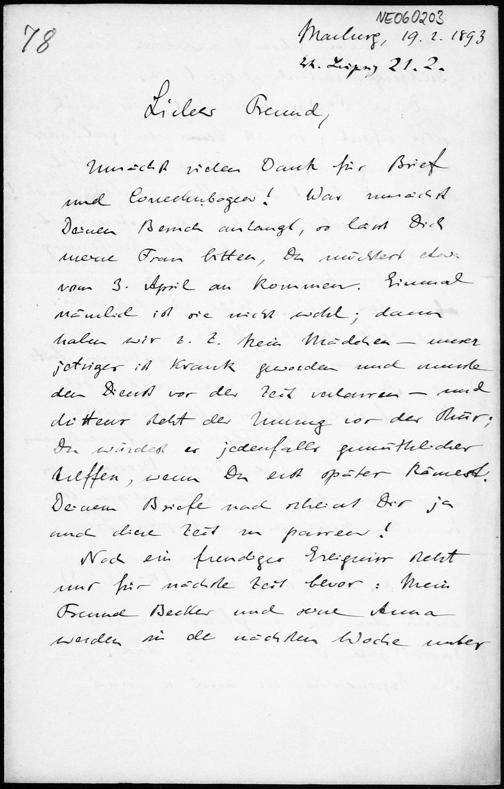 NE060203
78
Marburg, 19. 2. 1893
Leipzig 21. 2.
Lieber Freund,
Zunächst vielen Dank für Brief
und Correcturbogen! Was zunächst
Deinen Besuch anlangt, so lässt Dich
meine Frau bitten, Du möchtest etwa
vom 3. April an kommen. Einmal
nämlich ist sie nicht wohl; dann
haben wir z. Z. kein Mädchen – unser
jetziges ist krank geworden und musste
den Dienst vor der Zeit verlassen – und
drittens steht der Umzug vor der Thür;
Du würdest es jedenfalls gemüthlicher
treffen, wenn Du erst später kämest.
Deinem Briefe nach scheint Dir ja
auch diese Zeit zu passen!
Noch ein freudiges Ereigniss steht
uns für nächste Zeit bevor: Mein
Freund Becker und seine Anna
werden in der nächsten Woche unter